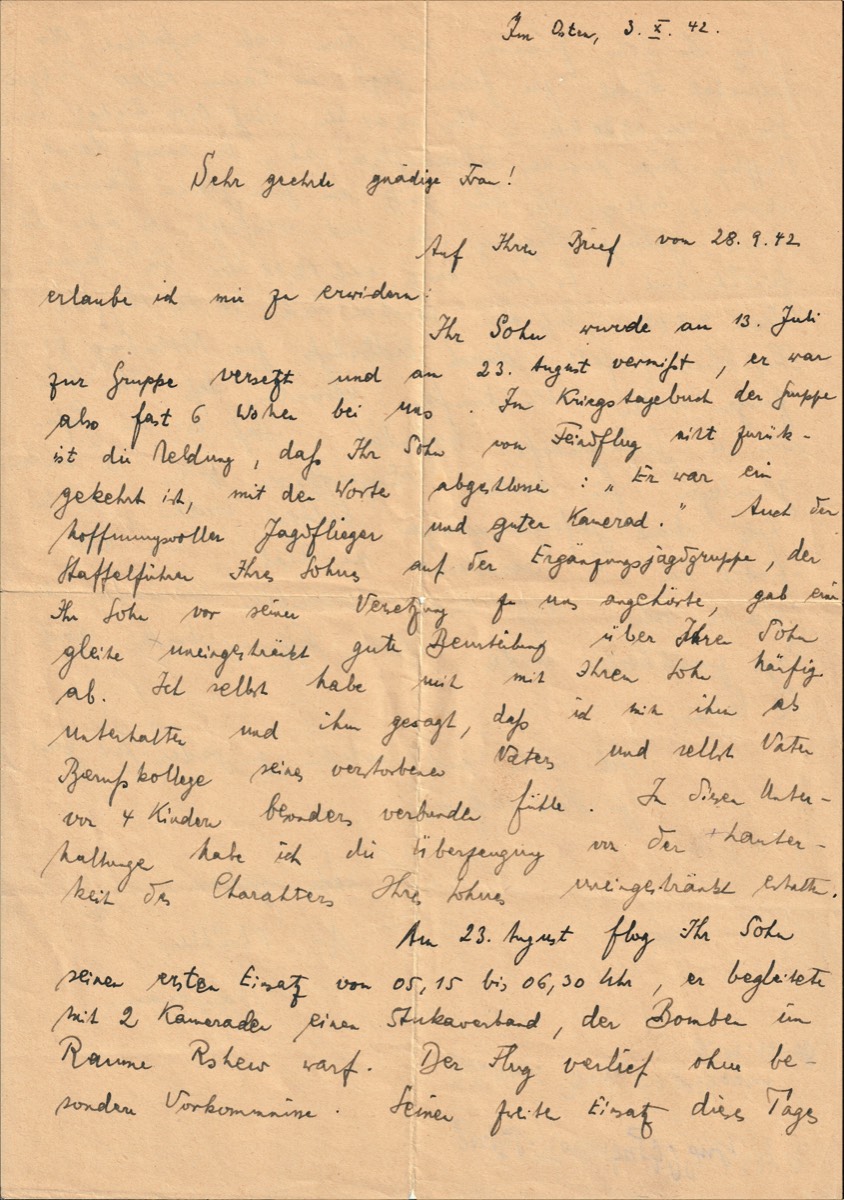 Im Osten, 3. X. 42.
Sehr geehrte gnädige Frau!
Auf Ihren Brief vom 28.9.42
erlaube ich mir zu erwidern:
Ihr Sohn wurde am 13. Juli
zur Gruppe versetzt und am 23. August vermißt, er war
also fast 6 Wochen bei uns. Im Kriegstagebuch der Gruppe
ist die Meldung, daß Ihr Sohn vom Feindflug nicht zurück-
gekehrt ist, mit den Worten abgeschlossen: „Er war ein
hoffnungsvoller Jagdflieger und guter Kamerad." Auch der
Staffelführer Ihres Sohnes auf der Ergänzungsjagdgruppe, der
Ihr Sohn vor seiner Versetzung zu uns angehörte, gab eine
gleiche uneingeschränkt gute Beurteilung über Ihren Sohn
ab. Ich selbst habe mich mit Ihrem Sohn häufig
unterhalten und ihm gesagt, daß ich mich ihm als
Berufskollege seines verstorbenen Vaters und selbst Vater
von 4 Kindern besonders verbunden fühle. In diesen Unter-
haltungen habe ich die Überzeugung von der Lauter-
keit des Charakters Ihres Sohnes uneingeschränkt erhalten.
Am 23. August flog Ihr Sohn
seinen ersten Einsatz von 05,15 bis 06,30 Uhr, er begleitete
mit 2 Kameraden einen Stukaverband, der Bomben im
Raume Rshew warf. Der Flug verlief ohne be-
sondere Vorkommnisse. Seinen zweiten Einsatz dieses Tages